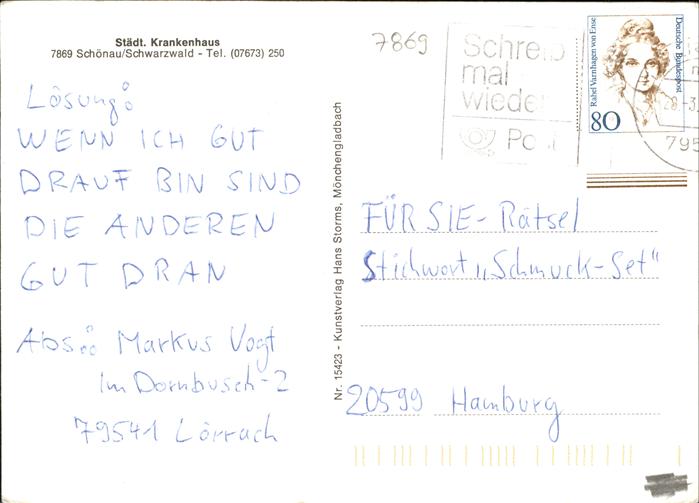 Städt. Krankenhaus
7869 Schönau/Schwarzwald - Tel. (07673) 250
Lösung:
WENN ICH GUT
DRAUF BIN SIND
DIE ANDEREN
GUT DRAN
Abs.: Markus Vogt
Im Dornbusch-2
79541 Lörrach
Nr. 15423 - Kunstverlag Hans Storms, Mönchengladbach
7869
Schreib
mal
wieder
Post
Rahel Varnhagen von Ense
Deutsche Bundespost
80
28.-3.
795
FÜR SIE-Rätsel
Stichwort „Schmuck-Set“
20599 Hamburg